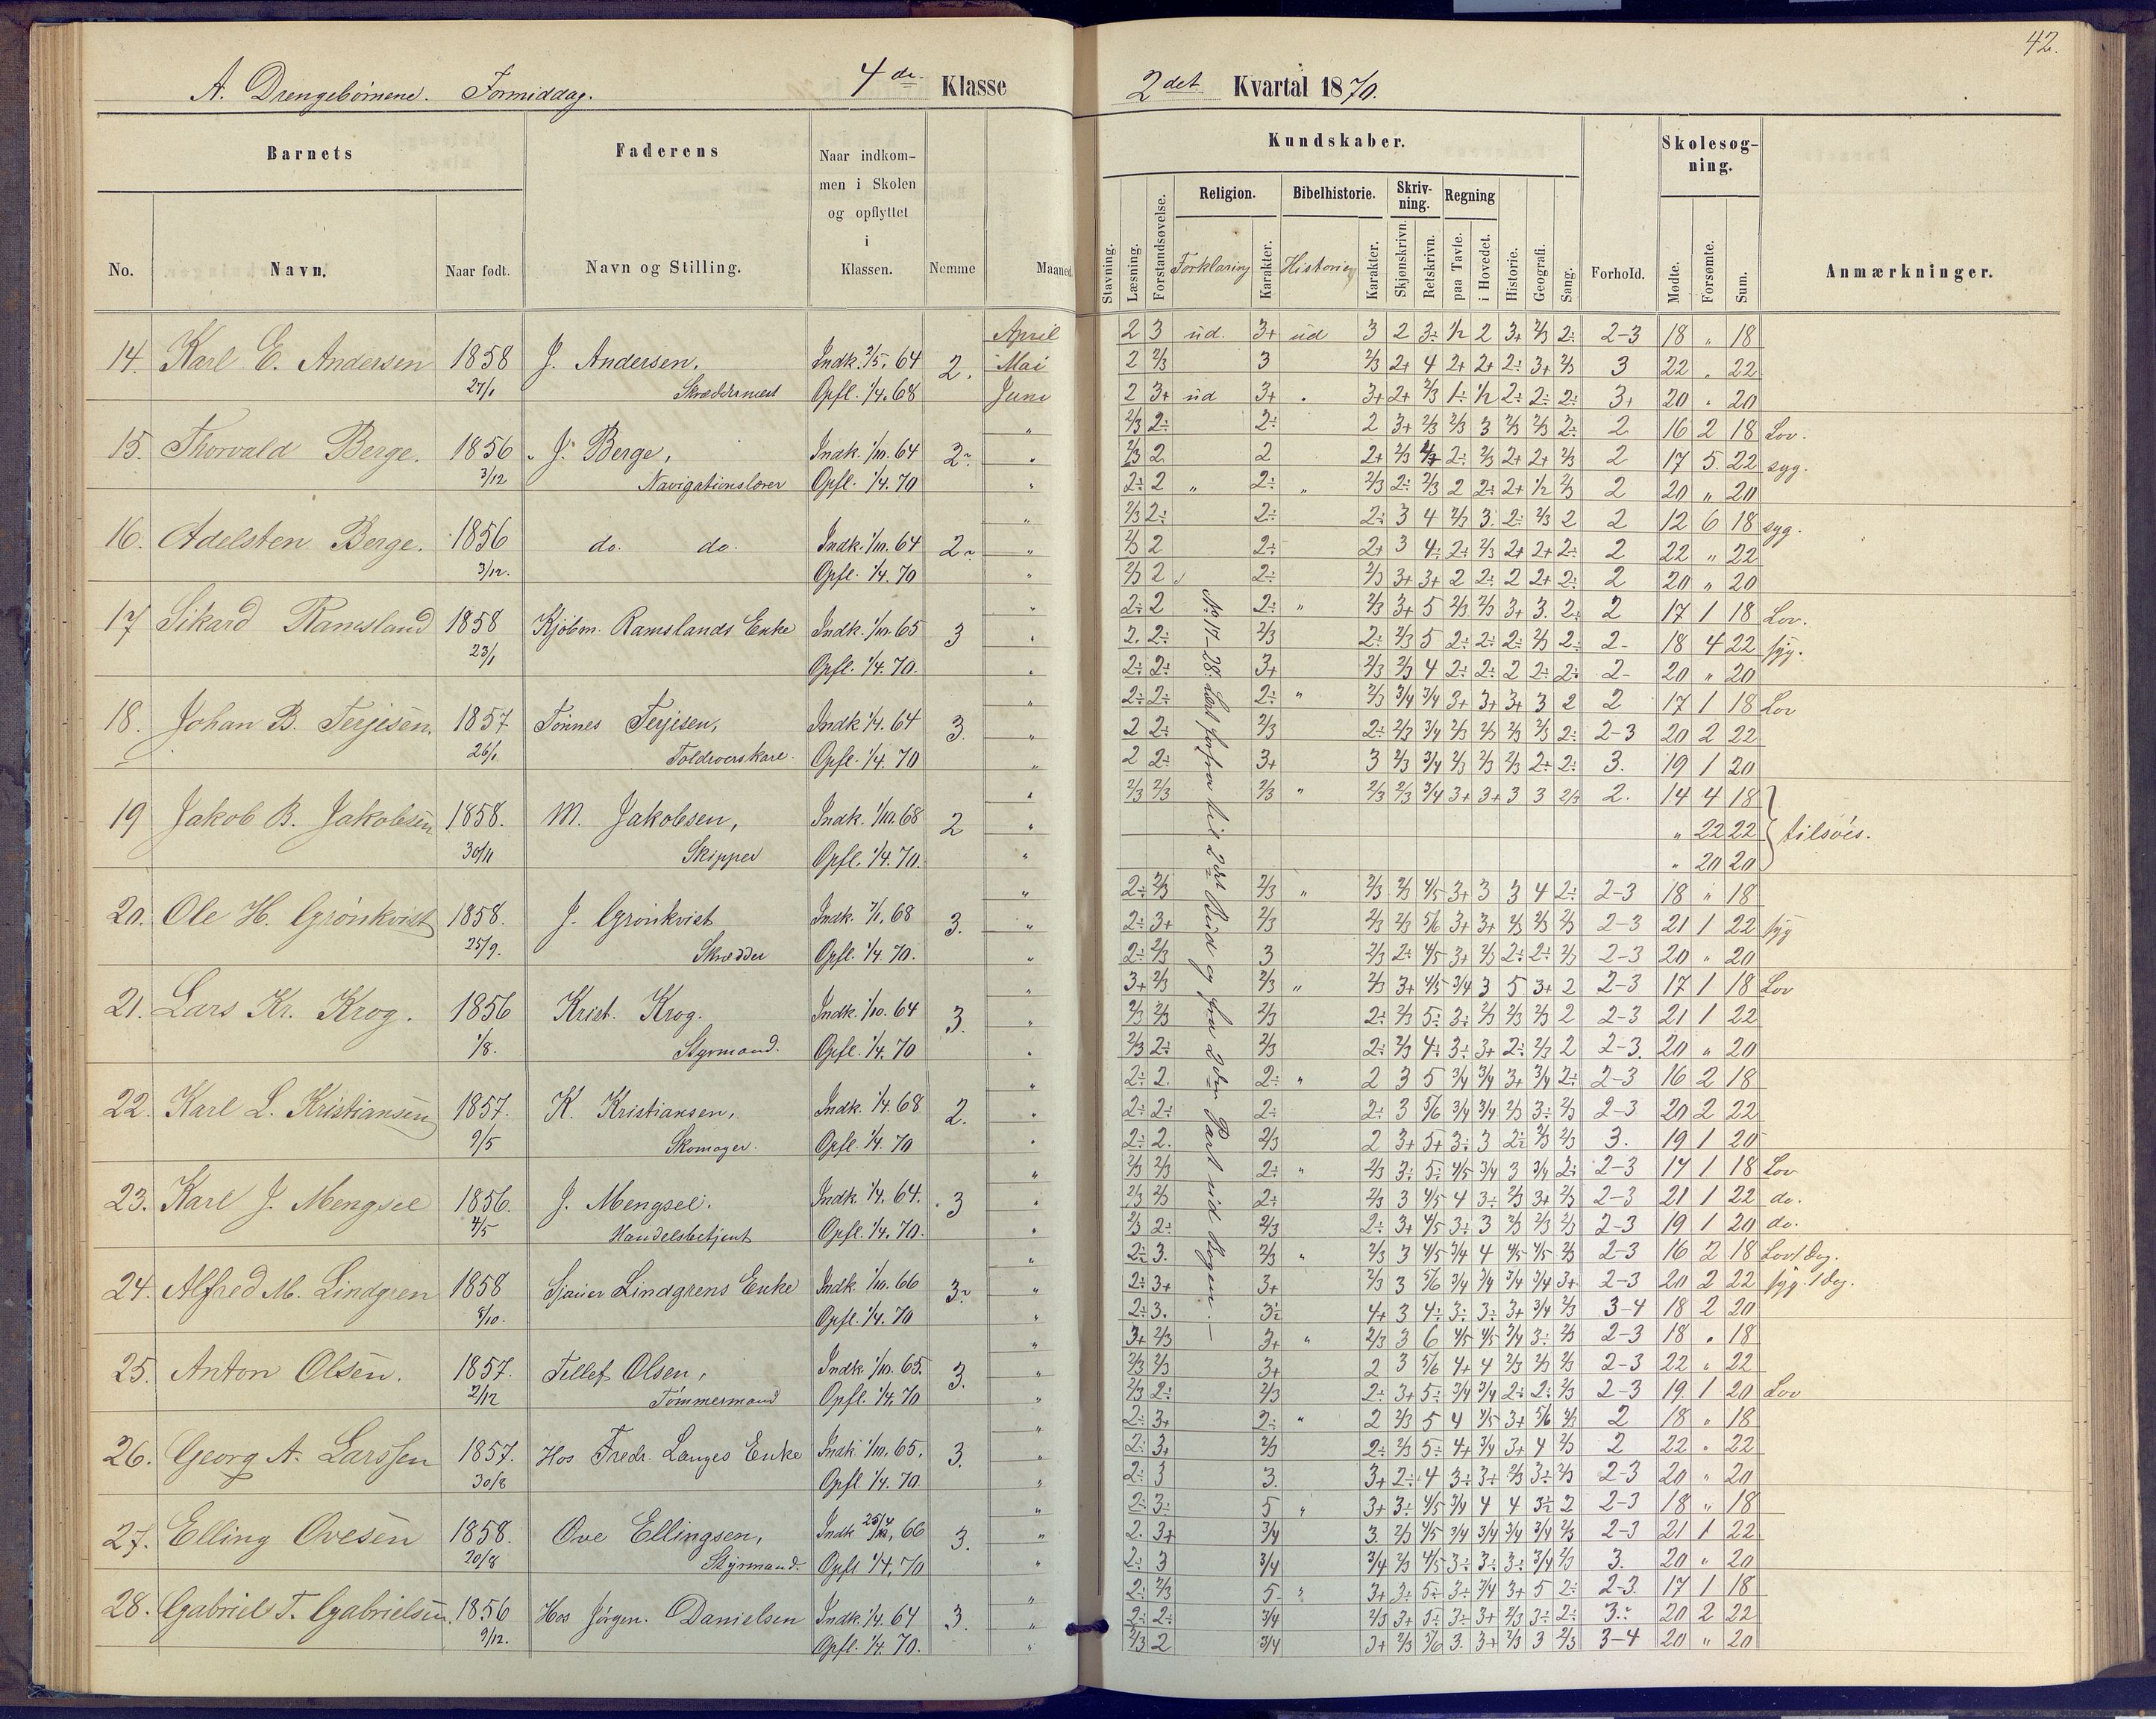 42.
A. Drengebörnene. Formiddag. 4de Klasse
2det Kvartal 1870.
Barnets
Faderens
Naar indkom-
men i Skolen
og opflyttet
i
Klassen.
No.
Navn.
Naar født.
Navn og Stilling.
Nemme
Maaned
Kundskaber.
Skolesøg-
ning.
Religion.
Bibelhistorie.
Skriv-
ning.
Regning
Stavning.
Læsning.
Forstandsøvelse.
Forklaring
Karakter.
Historie
Karakter.
Skjønskrivn.
Retskrivn.
paa Tavle.
i Hovedet.
Historie.
Geografi.
Sang.
Forhold.
Mødte.
Forsømte.
Sum.
Anmærkninger.
April 2 3 ud. 3+ ud 3 2 3÷ 1/2 2 3+ 2/3 2÷ 2-3 18 " 18
14. Karl E. Andersen 1858 J. Andersen, Indk. 2/5. 64 2. Mai 2 2/3 3 2/3 2+ 4 2+ 2+ 2÷ 3+ 2/3 3 22 " 22
27/1 Skrædermest Opfl. 1/4. 68 Juni 2 3+ ud 3+ " 3+ 2+ 2/3 1÷ 1/2 2÷ 2÷ 2÷ 3+ 20 " 20
" 2/3 2÷ 2÷ 2 3+ 2/3 2/3 3 2/3 2/3 2÷ 2 16 2 18 Lov.
15. Thorvald Berge. 1856 J. Berge, Indk. 1/10. 64 2÷ " 2/3 2 2 2+ 2/3 2÷ 2/3 2+ 2+ 2/3 2 17 5 22 syg.
3/12 Navigationslærer Opfl. 1/4. 70 " 2÷ 2 " 2÷ " 2/3 2÷ 2/3 2 2÷ 2+ 1/2 2/3 2 20 " 20
" 2/3 2÷ 2÷ 2÷ 3 4 2/3 3. 2÷ 2/3 2 2 12 6 18 syg.
16. Adelsten Berge. 1856 do. do. Indk. 1/10. 64 2÷ " 2/3 2 2÷ 2+ 3 4÷ 2÷ 2/3 2+ 2+ 2÷ 2 22 " 22
3/12. Opfl. 1/4. 70 " 2/3 2 2÷ 2/3 3+ 3+ 2 2÷ 2 2+ 2÷ 2 20 " 20
" 2÷ 2 2÷ " 2/3 3+ 5 2/3 2/3 3+ 3. 2÷ 2 17 1 18 Lov.
17 Sikard Ramsland 1858 Kjöbm. Ramslands Enke Indk. 1/10. 65 3 " 2. 2÷ 2/3 2÷ 2/3 5 2÷ 2÷ 2÷ 2/3 2÷ 2- 18 4 22 syg.
23/1 Opfl. 1/4. 70. " 2÷ 2÷ 3+ 2/3 2/3 4 2÷ 2÷ 2 2÷ 2÷ 2- 20 " 20
" 2÷ 2÷ 2÷ " 2/3 3/4 3/4 3+ 3+ 3+ 3 2 2 17 1 18 Lov
18. Johan B. Terjisen. 1857 Tönnes Terjisen, Indk 1/4. 64 3. " 2 2÷ 2/3 2÷ 2/3 3/4 2/3 2/3 2/3 2/3 2÷ 2-3 20 2 22
26/1 Toldroerskarl Opfl. 1/4. 70 " 2 2÷ 3+ 3 2/3 3/4 2/3 2/3 2/3 2+ 2÷ 3. 19 1 20
" 2/3 2/3 2/3 " 2/3 2/3 3/4 3+ 3+ 3 3 2/3 2. 14 4 18
19 Jakob B. Jakobsen 1858. M. Jakobsen, Indk. 1/10. 68 2 " " 22 22 tilsöes.
30/11 Skipper Opfl. 1/4. 70. " " 20 20
" 2÷ 2/3 2/3 " 2/3 2/3 4/5 3+ 3 3 4 2÷ 2-3 18 " 18
20. Ole H. Grönkvist 1858. J. Grönkvist Indk. 7/1. 68 3. " 2÷ 3+ 2/3 2/3 2/3 5/6 3+ 3+ 2/3 2/3 2/3 2-3 21 1 22 syg
25/9. Skrædder Opfl. 1/4. 70. " 2÷ 2/3 3 2/3 2÷ 4/5 3+ 2/3 2÷ 2÷ 2/3 2-3 20 " 20
" 3+ 2/3 2/3 " 2/3 3+ 4/5 3/4 3 5 3+ 2 2-3 17 1 18 Lov
21. Lars Kr. Krog. 1856 Krist. Krog. Indk. 1/10. 64 3. " 2/3 2/3 2/3 2÷ 2/3 5÷ 3÷ 2/3 2/3 2/3 2 2-3 21 1 22
1/8. Styrmand. Opfl. 1/4. 70 " 2/3 2÷ 2/3 2÷ 2/3 4÷ 3÷ 3+ 2÷ 2/3 2 2-3. 20 " 20
" 2÷ 2. 2÷ " 2 3 5 3/4 3/4 3+ 3/4 2÷ 2-3 16 2 18
22. Karl L. Kristiansen 1857. K. Kristiansen, Indk. 1/4. 68 2. " 2÷ 2÷ 2÷ 2÷ 3 5/6 3/4 3/4 2/3 3÷ 2/3 2-3 20 2 22
9/5 Skomager. Opfl. 1/4. 70 " 2÷ 2. 2/3 2 3+ 5+ 3÷ 3 2÷ 2/3 2/3 3. 19 1 20
" 2/3 2/3 2÷ " 2/3 3÷ 5÷ 4/5 3/4 3 3/4 2÷ 2-3 17 1 18 Lov
23. Karl J. Mengsel 1856. J. Mengsel. Indk 1/4. 64. 3 " 2/3 2/3 2÷ 2/3 3 4/5 4 3÷ 2/3 3+ 2/3 2-3 21 1 22 do.
4/5 Handelsbetjent Opfl. 1/4. 70. " 2/3 2÷ 2/3 2÷ 3+ 4/5 3÷ 3 2/3 2/3 2/3 2-3 19 1 20 do.
" 2÷ 3. 2/3 " 2/3 3 4/5 3/4 4 4/5 4/5 2/3 2-3 16 2 18 Lov 1 Dag.
24. Alfred M. Lindgren 1858 Sjauer Lindgrens Enke Indk 1/10. 66 3÷ " 2÷ 3+ 3+ 2/3 3 5/6 3/4 3/4 3/4 3/4 3+ 2-3 20 2 22 syg. 1 dag.
8/10. Opfl. 1/4. 70 " 2÷ 3. 3÷ 4+ 3 4÷ 3÷ 3÷ 3+ 3/4 2/3 3-4 18 2 20
" 3+ 2/3 3+ " 2/3 3 6 4/5 4/5 3/4 3÷ 2/3 2-3 18 " 18
25. Anton Olsen. 1857. Tellef Olsen, Indk 1/10. 65. 3. " 2/3 2/3 3+ 2 3 5/6 4+ 4 2/3 2/3 2/3 2-3 22 " 22
2/12 Tömmermand Opfl. 1/4. 70 " 2/3 2÷ 2/3 2÷ 3+ 5÷ 3/4 3/4 2÷ 2÷ 2/3 2-3 19. 1 20 Lov
" 2÷ 3+ 2÷ " 2 2/3 5 4 4/5 3+ 5/6 2/3 2 18 " 18
26. Georg A. Larssen 1857. Hos Fredr. Langes Enke Indk 1/10. 65. 3. " 2÷ 3+ 2/3 2÷ 2/3 5÷ 4+ 3/4 3+ 4 2/3 2 22 " 22
30/8 Opfl 1/4. 70. " 2÷ 3 3. 3+ 2÷ 4 3÷ 3÷ 2/3 3÷ 2/3 2-3 20 " 20
" 2÷ 3÷ 5 " 3+ 3÷ 4/5 3/4 4 4 3÷ 2 2-3 18 " 18
27. Elling Ovesen 1858. Ove Ellingsen, Indk 25/4. 66 3. " 2. 3+ 3/4 3. 2/3 4/5 3/4 3/4 3/4 3/4 2/3 2-3 21 1 22
20/8 Styrmand. Opfl 1/4. 70 " 2÷ 3 3/4 3/4 2/3 4/5 3÷ 3÷ 3÷ 3/4 2/3 3. 20 " 20
" 2÷ 2/3 5 " 3+ 3÷ 5÷ 3+ 3/4 3+ 5 2÷ 2-3. 17 1 18
28. Gabriel T. Gabrielsen. 1856 Hos Jörgen. Danielsen Indk. 1/4. 64 3. " 2÷ 2÷ 3/4 2/3 3+ 5÷ 3÷ 3+ 2/3 3÷ 2÷ 3÷ 20 2 22
9/12. Opfl. 1/4. 70. " 2/3 2 3/4 3+ 2/3 5/6 3. 3+ 2/3 3 2/3 3-4 20 " 20
No. 17-28. Læst forfra til 2det Bud og fra 2den Part ud Bogen. —